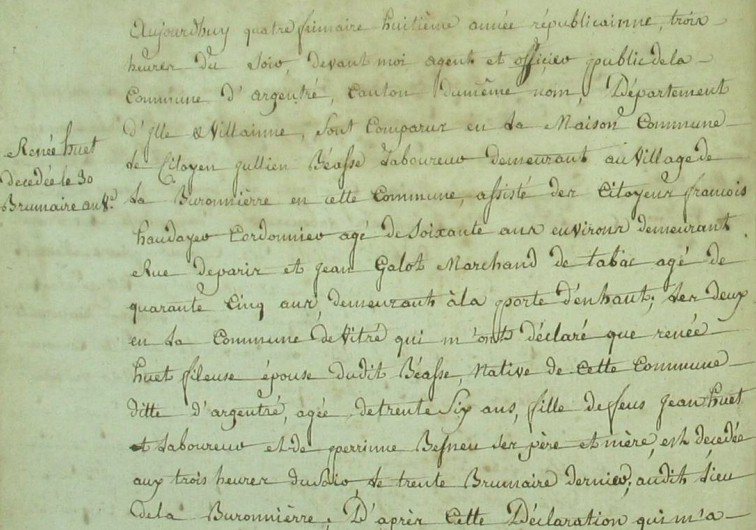 Aujourdhuy quatre frimaire huitième année républicainne, trois
heures du soir, devant moi agent et officier public de la
Commune d'argentré, Canton dumême nom, Département
d'Ille & Villainne, sont Comparus en la Maison Commune
Renée huet
le Citoyen jullien Béasse Laboureur demeurant au Village de
decedée le 30
la Buronnièrre en cette Commune, assisté des Citoyens francois
Brumaire an
haudayer Cordonnier agé de soixante ans environs demeurant
Rue deparis et jean Galot Marchand de tabac agé de
quarante Cinq ans, demeurants à la porte d'enhaut; les deux
en la Commune de Vitré qui m'onts déclaré que renée
huet fileuse épouse dudit Béasse, Native de Cette Commune
ditte d'argentré, agée detrente Six ans, fille de feus jean huet
Laboureur et de perrinne Besneu ses père et mère, est décedée
aux trois heures dusoir le trente Brumaire dernier, audit Lieu
dela Buronnièrre; D'après Cette Déclaration qui m'a